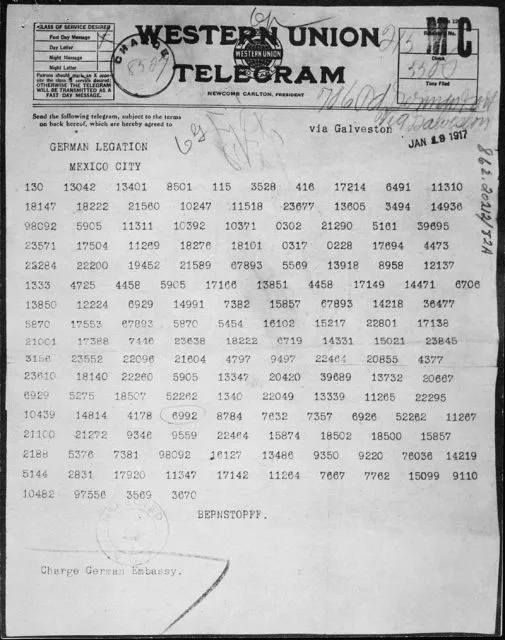 CLASS OF SERVICE DESIRED
Fast Day Message
Day Letter
Night Message
Night Letter
Patrons should mark an X oppo-
site the class of service desired;
OTHERWISE THE TELEGRAM
WILL BE TRANSMITTED AS A
FAST DAY MESSAGE.
CHARGE
WESTERN UNION
WESTERN UNION
TELEGRAM
NEWCOMB CARLTON, PRESIDENT
Receiver's No.
Check
Time Filed
Send the following telegram, subject to the terms
on back hereof, which are hereby agreed to
via Galveston
JAN 19 1917
GERMAN LEGATION
MEXICO CITY
130 13042 13401 8501 115 3528 416 17214 6491 11310
18147 18222 21560 10247 11518 23677 13605 3494 14936
98092 5905 11311 10392 10371 0302 21290 5161 39695
23571 17504 11269 18276 18101 0317 0228 17694 4473
23284 22200 19452 21589 67893 5569 13918 8958 12137
1333 4725 4458 5905 17166 13851 4458 17149 14471 6706
13850 12224 6929 14991 7382 15857 67893 14218 36477
5870 17553 67893 5870 5454 16102 15217 22801 17138
21001 17388 7446 23638 18222 6719 14331 15021 23845
3156 23552 22096 21604 4797 9497 22464 20855 4377
23610 18140 22260 5905 13347 20420 39689 13732 20667
6929 5275 18507 52262 1340 22049 13339 11265 22295
10439 14814 4178 6992 8784 7632 7357 6926 52262 11267
21100 21272 9346 9559 22464 15874 18502 18500 15857
2188 5376 7381 98092 16127 13486 9350 9220 76036 14219
5144 2831 17920 11347 17142 11264 7667 7762 15099 9110
10482 97556 3569 3670
BEPNSTOPFF.
Charge German Embassy.